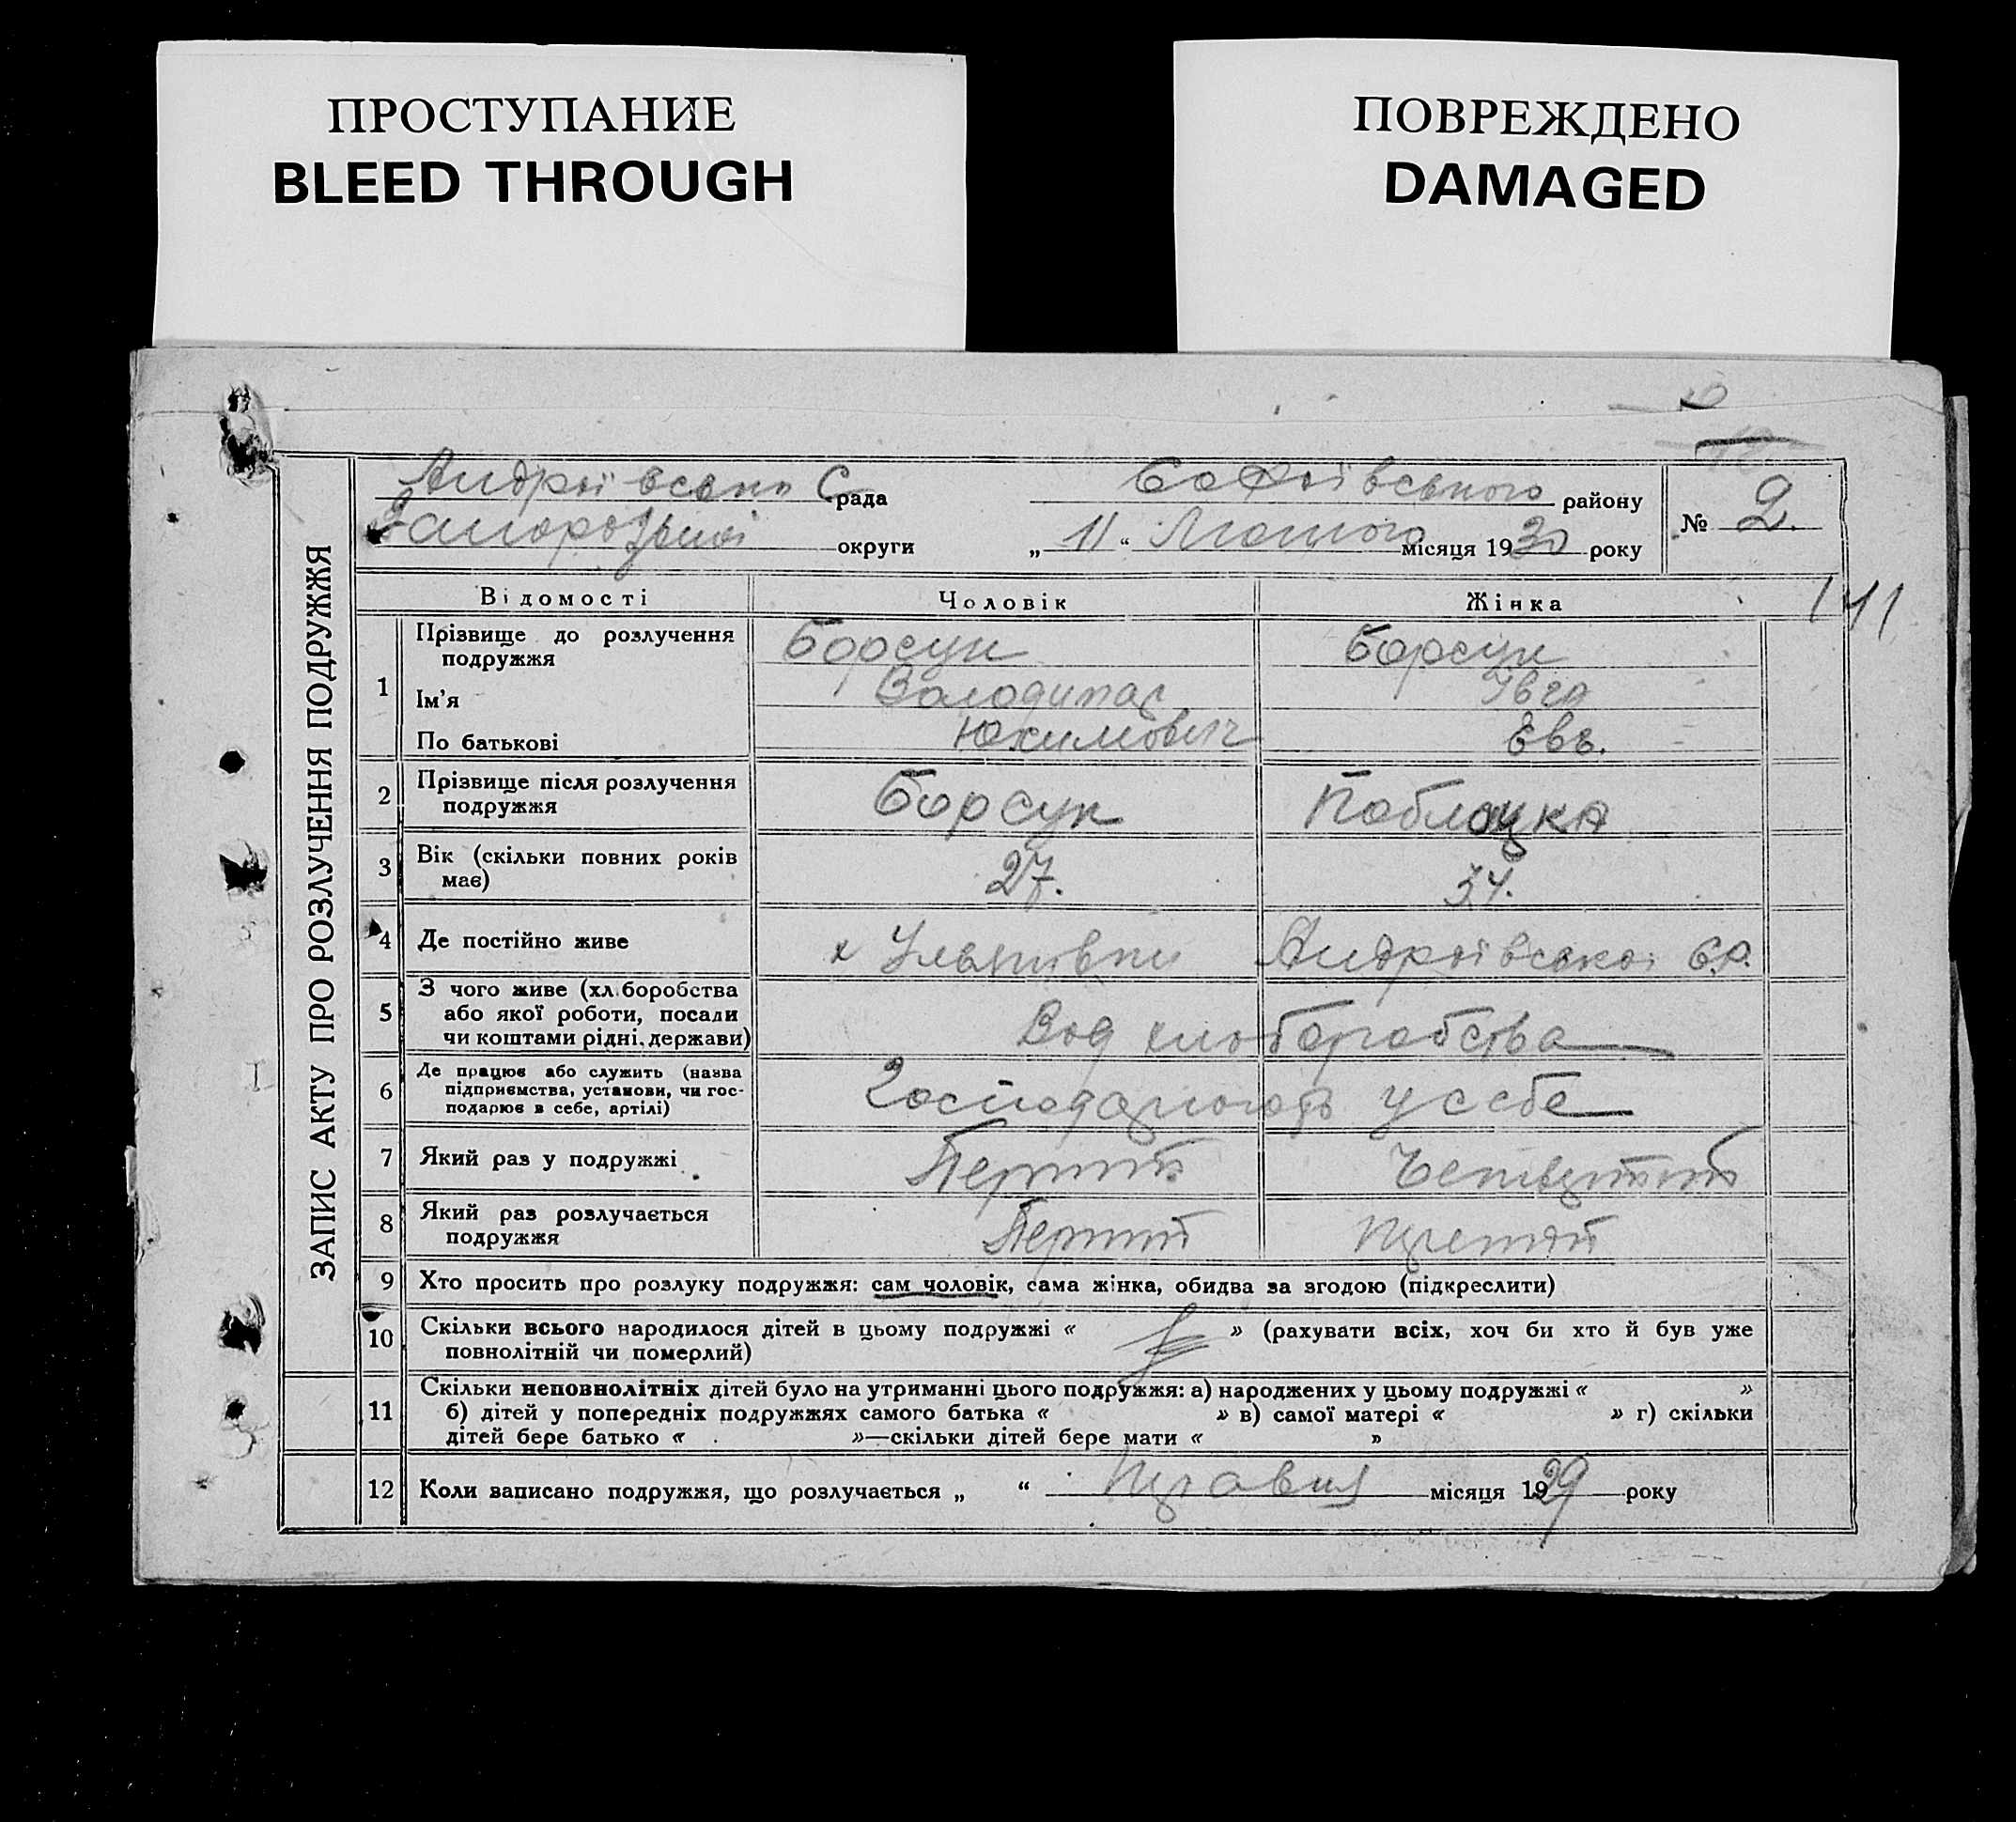 ПРОСТУПАНИЕ
BLEED THROUGH
ПОВРЕЖДЕНО
DAMAGED
ЗАПИС АКТУ ПРО РОЗЛУЧЕННЯ ПОДРУЖЖЯ
Андріївська С рада Софіївського району
округи „ 11 “ Лютого місяця 1930 року
№ 2.
Відомості Чоловік Жінка
111
1 Прізвище до розлучення подружжя Борсук Борсук
Ім'я Володимас
По батькові Юхимович Евг.
2 Прізвище після розлучення подружжя Борсук Поблоцка
3 Вік (скільки повних років має) 27. 34.
4 Де постійно живе х Андріївської С.р.
5 З чого живе (хліборобства або якої роботи, посади чи коштами рідні, держави) Від хліборобства
6 Де працює або служить (назва підприємства, установи, чи господарює в себе, артілі) Господарюють у себе
7 Який раз у подружжі Перший Четвертий
8 Який раз розлучається подружжя Перший третій
9 Хто просить про розлуку подружжя: сам чоловік, сама жінка, обидва за згодою (підкреслити)
10 Скільки всього народилося дітей в цьому подружжі « » (рахувати всіх, хоч би хто й був уже
повнолітній чи померлий)
11 Скільки неповнолітніх дітей було на утриманні цього подружжя: а) народжених у цьому подружжі « »
б) дітей у попередніх подружжях самого батька « » в) самої матері « » г) скільки
дітей бере батько « »—скільки дітей бере мати « »
12 Коли записано подружжя, що розлучається „ “ травня місяця 1929 року